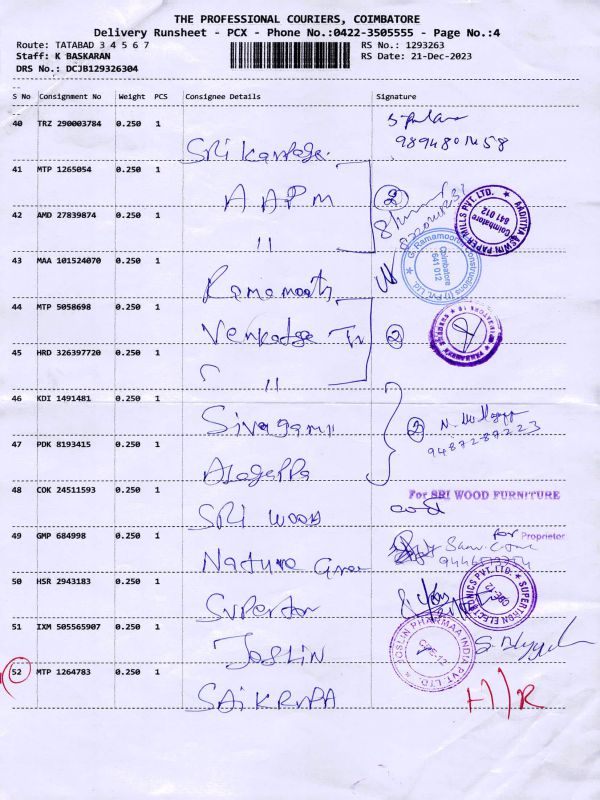 THE PROFESSIONAL COURIERS, COIMBATORE
Delivery Runsheet - PCX - Phone No.:0422-3505555 - Page No.:4
Route: TATABAD 3 4 5 6 7
RS No.: 1293263
Staff: K BASKARAN
RS Date: 21-Dec-2023
DRS No.: DCJB129326304
S No Consignment No Weight PCS Consignee Details Signature
40 TRZ 290003784 0.250 1
41 MTP 1265054 0.250 1 AAPM
42 AMD 27839874 0.250 1 "
AADITYA ASWIN PAPER MILLS PVT. LTD.
Coimbatore
641 012
43 MAA 101524070 0.250 1
G. Ramamoorthi Constructions (I) Pvt. Ltd.
Coimbatore
641 012
44 MTP 5058698 0.250 1
2
45 HRD 326397720 0.250 1 "
46 KDI 1491481 0.250 1 Sivagami
2
9487287223
47 PDK 8193415 0.250 1 Alagappa
48 COK 24511593 0.250 1 SRI WOOD
For SRI WOOD FURNITURE
49 GMP 684998 0.250 1 Nature
for Proprietor
50 HSR 2943183 0.250 1
SUPERTRON ELECTRONICS PVT. LTD.
51 IXM 505565907 0.250 1 JOSLIN
JOSLIN PHARMAA INDIA PVT. LTD.
CBE-12
52 MTP 1264783 0.250 1 SAIKRUPA